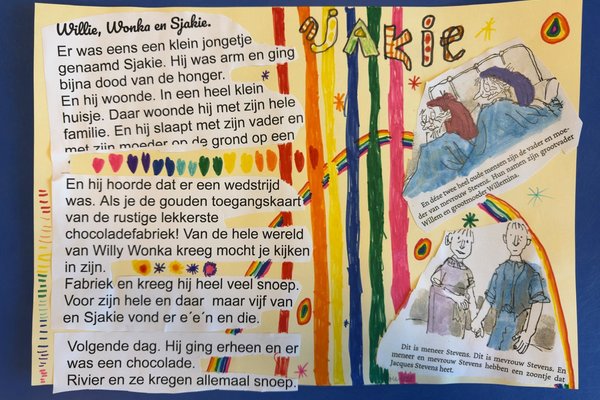 Willie, Wonka en Sjakie.
Er was eens een klein jongetje
genaamd Sjakie. Hij was arm en ging
bijna dood van de honger.
En hij woonde. In een heel klein
huisje. Daar woonde hij met zijn hele
familie. En hij slaapt met zijn vader en
met zijn moeder op de grond op een
En hij hoorde dat er een wedstrijd
was. Als je de gouden toegangskaart
van de rustige lekkerste
chocoladefabriek! Van de hele wereld
van Willy Wonka kreeg mocht je kijken
in zijn.
Fabriek en kreeg hij heel veel snoep.
Voor zijn hele en daar maar vijf van
en Sjakie vond er e´e´n en die.
Volgende dag. Hij ging erheen en er
was een chocolade.
Rivier en ze kregen allemaal snoep.
JAKIE
En déze twee heel oude mensen zijn de vader en moe-
der van mevrouw Stevens. Hun namen zijn grootvader
Willem en grootmoeder Willemina.
Dit is meneer Stevens. Dit is mevrouw Stevens. En
meneer en mevrouw Stevens hebben een zoontje dat
Jacques Stevens heet.